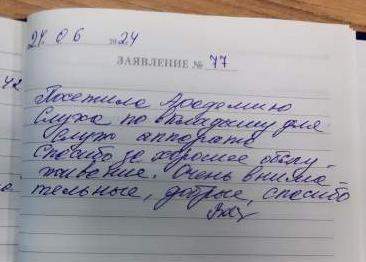 24. 06 2024
ЗАЯВЛЕНИЕ № 77
Посетила Академию
Слуха по вкладышу для
Слух аппарата
Спасибо за хорошее обслу-
живание. Очень внима-
тельные, добрые, спасибо
42